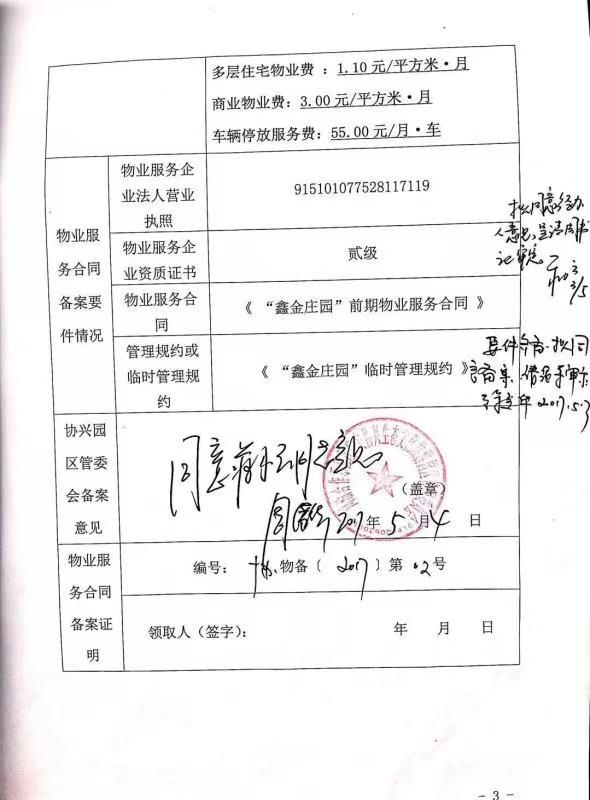 多层住宅物业费 ：1.10 元/平方米·月
商业物业费：3.00 元/平方米·月
车辆停放服务费：55.00 元/月·车
物业服
务合同
备案要
件情况
物业服务企
业法人营业
执照
915101077528117119
物业服务企
业资质证书
贰级
物业服务合
同
《 “鑫金庄园”前期物业服务合同 》
管理规约或
临时管理规
约
《 “鑫金庄园”临时管理规约 》
拟同意经办
人意见，呈请
3/5
要件齐备，拟同
意备案
2017.5.3
协兴园
区管委
会备案
意见
同意
意见
（盖章）
2017年 5 月 4 日
物业服
务合同
备案证
明
编号： 协.物备〔 2017 〕第 02 号
领取人（签字）：
年 月 日
- 3 -